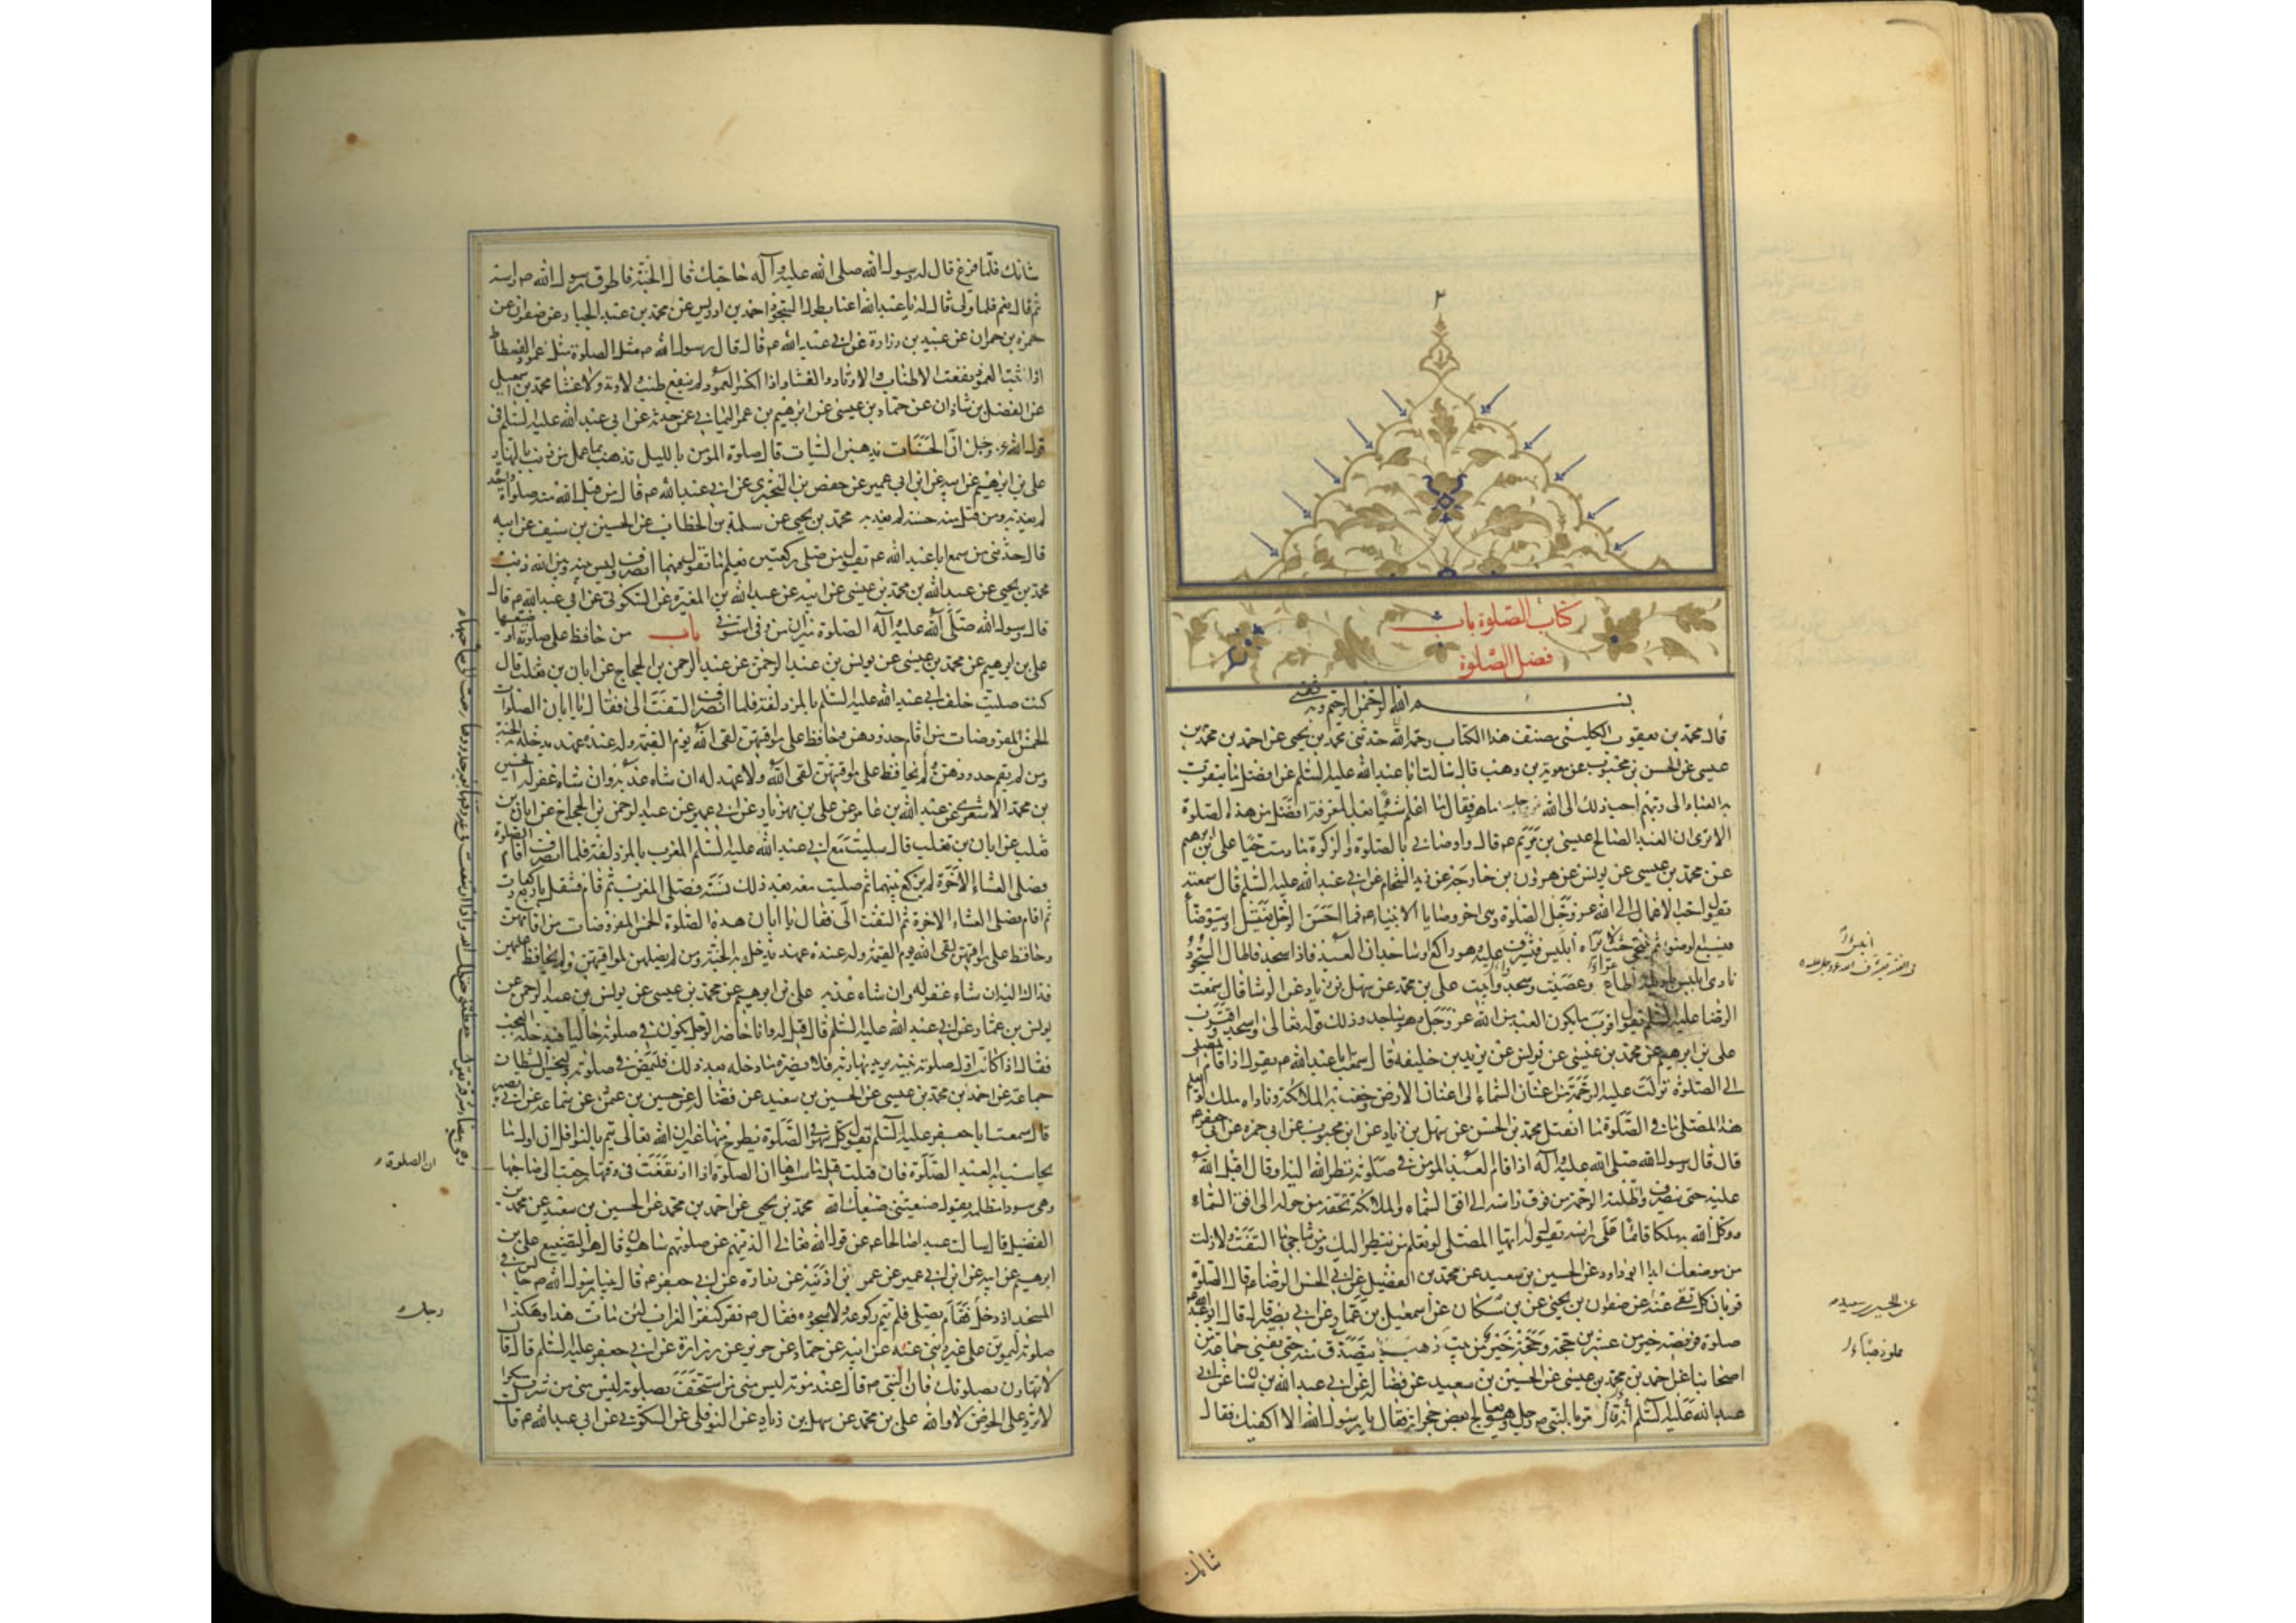 ٢
كتاب الصلوة باب
فضل الصلوة
بسم الله الرحمن الرحيم وبه ثقتي
قال محمد بن يعقوب الكليني مصنف هذا الكتاب رحمه الله حدثني محمد بن يحيى عن احمد بن محمد بن
عيسى عن الحسن بن محبوب عن معوية بن وهب قال سالت ابا عبد الله عليه السلم عن افضل ما يتقرب
به العباد الى ربهم احب ذلك الى الله عز وجل ما هو فقال ما اعلم شيئا بعد المعرفة افضل من هذه الصلوة
الا ترى ان العبد الصالح عيسى بن مريم ع قال واوصاني بالصلوة والزكوة ما دمت حيا علي بن ابرهيم
عن محمد بن عيسى عن يونس عن هرون بن خارجة عن زيد الشحام عن ابي عبد الله عليه السلم قال سمعته
يقول احب الاعمال الى الله عز وجل الصلوة وهي اخر وصايا الانبياء ع فما احسن الرجل يغتسل او يتوضأ
فيسبغ الوضوء ثم يتنحى حيث لا يراه ابليس فيشرف عليه وهو راكع وساجد ان العبد فاذا سجد فاطال السجود
نادى ابليس يا ويله اطاع وعصيت وسجد وابيت علي بن محمد عن سهل بن زياد عن الوشا قال سمعت
الرضا عليه السلم يقول اقرب ما يكون العبد من الله عز وجل وهو ساجد وذلك قوله تعالى واسجد واقترب
علي بن ابرهيم عن محمد بن عيسى عن يونس عن يزيد بن خليفه قال سمعت ابا عبد الله ع يقول اذا قام المصلي
الى الصلوة نزلت عليه الرحمة من اعنان السماء الى اعنان الارض وحفت به الملائكة وناداه ملك لو يعلم
هذا المصلي ما في الصلوة ما انفتل محمد بن الحسن عن سهل بن زياد عن ابن محبوب عن ابي حمزه عن ابي جعفر ع
قال قال رسول الله صلى الله عليه وآله اذا قام العبد المؤمن في صلوته نظر الله اليه او قال اقبل الله
عليه حتى ينصرف واظلته الرحمة من فوق راسه الى افق السماء والملائكة تحفه من حوله الى افق السماء
ووكل الله به ملكا قائما على راسه يقول له ايها المصلي لو تعلم من ينظر اليك ومن تناجي ما التفت ولا زلت
من موضعك ابدا ابو داود عن الحسين بن سعيد عن محمد بن الفضيل عن ابي الحسن الرضا ع قال الصلوة
قربان كل تقي عنه عن صفوان بن يحيى عن بن مسكان عن اسمعيل بن عمار عن ابي بصير قال قال ابو عبد الله ع
صلوة فريضة خير من عشرين حجة وحجة خير من بيت ذهب يتصدق منه حتى يفنى جماعة من
اصحابنا عن احمد بن محمد بن عيسى عن الحسين بن سعيد عن فضالة عن ابي عبد الله بن سنان عن ابي
عبد الله عليه السلم انه قال مر بالنبي ص رجل وهو يعالج بعض حجراته فقال يا رسول الله الا اكفيك فقال
شانك
عن الحسين بن سعيد
شانك فلما فرغ قال له رسول الله صلى الله عليه وآله حاجتك قال الجنة فاطرق رسول الله ص راسه
ثم قال نعم فلما ولى قال له يا عبد الله اعنا بطول السجود احمد بن ادريس عن محمد بن عبد الجبار عن صفوان عن
حمزة بن حمران عن عبيد بن زرارة عن ابي عبد الله ع قال قال رسول الله ص مثل الصلوة مثل عمود الفسطاط
اذا ثبت العمود نفعت الاطناب والاوتاد والغشاء واذا انكسر العمود لم ينفع طنب ولا وتد ولا غشا محمد بن اسمعيل
عن الفضل بن شاذان عن حماد بن عيسى عن ابرهيم بن عمر اليماني عمن حدثه عن ابي عبد الله عليه السلم في
قول الله عز وجل ان الحسنات يذهبن السيات قال صلوة المؤمن بالليل تذهب بما عمل من ذنب بالنهار
علي بن ابرهيم عن ابيه عن ابن ابي عمير عن حفص بن البختري عن ابي عبد الله ع قال من قبل الله منه صلوة واحدة
لم يعذبه ومن قبل منه حسنة لم يعذبه محمد بن يحيى عن سلمة بن الخطاب عن الحسين بن سيف عن ابيه
قال حدثني من سمع ابا عبد الله ع يقول من صلى ركعتين يعلم ما يقول فيهما انصرف وليس بينه وبين الله ذنب
محمد بن يحيى عن عبد الله بن محمد بن عيسى عن ابيه عن عبد الله بن المغيرة عن السكوني عن ابي عبد الله ع قال
قال رسول الله صلى الله عليه وآله الصلوة ميزان من وفى استوفى باب من حافظ على صلوته او ضيعها
علي بن ابرهيم عن محمد بن عيسى عن يونس بن عبد الرحمن عن عبد الرحمن بن الحجاج عن ابان بن تغلب قال
كنت صليت خلف ابي عبد الله عليه السلم بالمزدلفة فلما انصرف التفت الي فقال يا ابان الصلوات
الخمس المفروضات من اقام حدودهن وحافظ على مواقيتهن لقي الله يوم القيمة وله عنده عهد يدخله به الجنة
ومن لم يقم حدودهن ولم يحافظ على مواقيتهن لقي الله ولا عهد له ان شاء عذبه وان شاء غفر له الحسين
بن محمد الاشعري عن عبد الله بن عامر عن علي بن مهزيار عن ابن ابي عمير عن عبد الرحمن بن الحجاج عن ابان بن
تغلب عن ابان بن تغلب قال صليت مع ابي عبد الله عليه السلم المغرب بالمزدلفة فلما انصرف اقام الصلوة
فصلى العشاء الاخرة لم يركع بينهما ثم صليت معه بعد ذلك بسنة فصلى المغرب ثم قام فتنفل باربع ركعات
ثم اقام فصلى العشاء الاخرة ثم التفت الي فقال يا ابان هذه الصلوة الخمس المفروضات من اقامهن
وحافظ على مواقيتهن لقي الله يوم القيمة وله عنده عهد يدخله به الجنة ومن لم يصلهن لمواقيتهن ولم يحافظ عليهن
فذاك اليه ان شاء غفر له وان شاء عذبه علي بن ابرهيم عن محمد بن عيسى عن يونس بن عبد الرحمن عن
يونس بن عمار عن ابي عبد الله عليه السلم قال قيل له وانا حاضر الرجل يكون في صلوته خاليا فيدخله العجب
فقال اذا كانت اول صلوته بنية يريد بها ربه فلا يضره ما دخله بعد ذلك فليمض في صلوته وليخسأ الشيطان
جماعة عن احمد بن محمد بن عيسى عن الحسين بن سعيد عن فضالة عن حسين بن عثمن عن سماعة عن ابي بصير
قال سمعت ابا جعفر عليه السلم يقول كل سهو في الصلوة يطرح منها غير ان الله تعالى يتم بالنوافل ان اول ما
يحاسب به العبد الصلوة فان قبلت قبل ما سواها ان الصلوة اذا ارتفعت في وقتها رجعت الى صاحبها
وهي سودا مظلمة يقول ضيعتني ضيعك الله محمد بن يحيى عن احمد بن محمد عن الحسين بن سعيد عن محمد بن
الفضيل قال سالت عبدا صالحا ع عن قول الله تعالى الذين هم عن صلوتهم ساهون قال هو التضييع علي بن
ابرهيم عن ابيه عن ابن ابي عمير عن عمر بن اذينة عن زرارة عن ابي جعفر ع قال بينا رسول الله ص جالس في
المسجد اذ دخل فقام يصلي فلم يتم ركوعه ولا سجوده فقال ص نقر كنقر الغراب لئن مات هذا وهكذا
صلوته ليموتن على غير ديني عنه عن ابيه عن حماد عن حريز عن زرارة عن ابي جعفر عليه السلم قال قال
لا تتهاون بصلوتك فان النبي ص قال عند موته ليس مني من استخف بصلوته ليس مني من شرب مسكرا
لا يرد علي الحوض لا والله علي بن محمد عن سهل بن زياد عن النوفلي عن السكوني عن ابي عبد الله ع قال
ان الصلوة
رجل